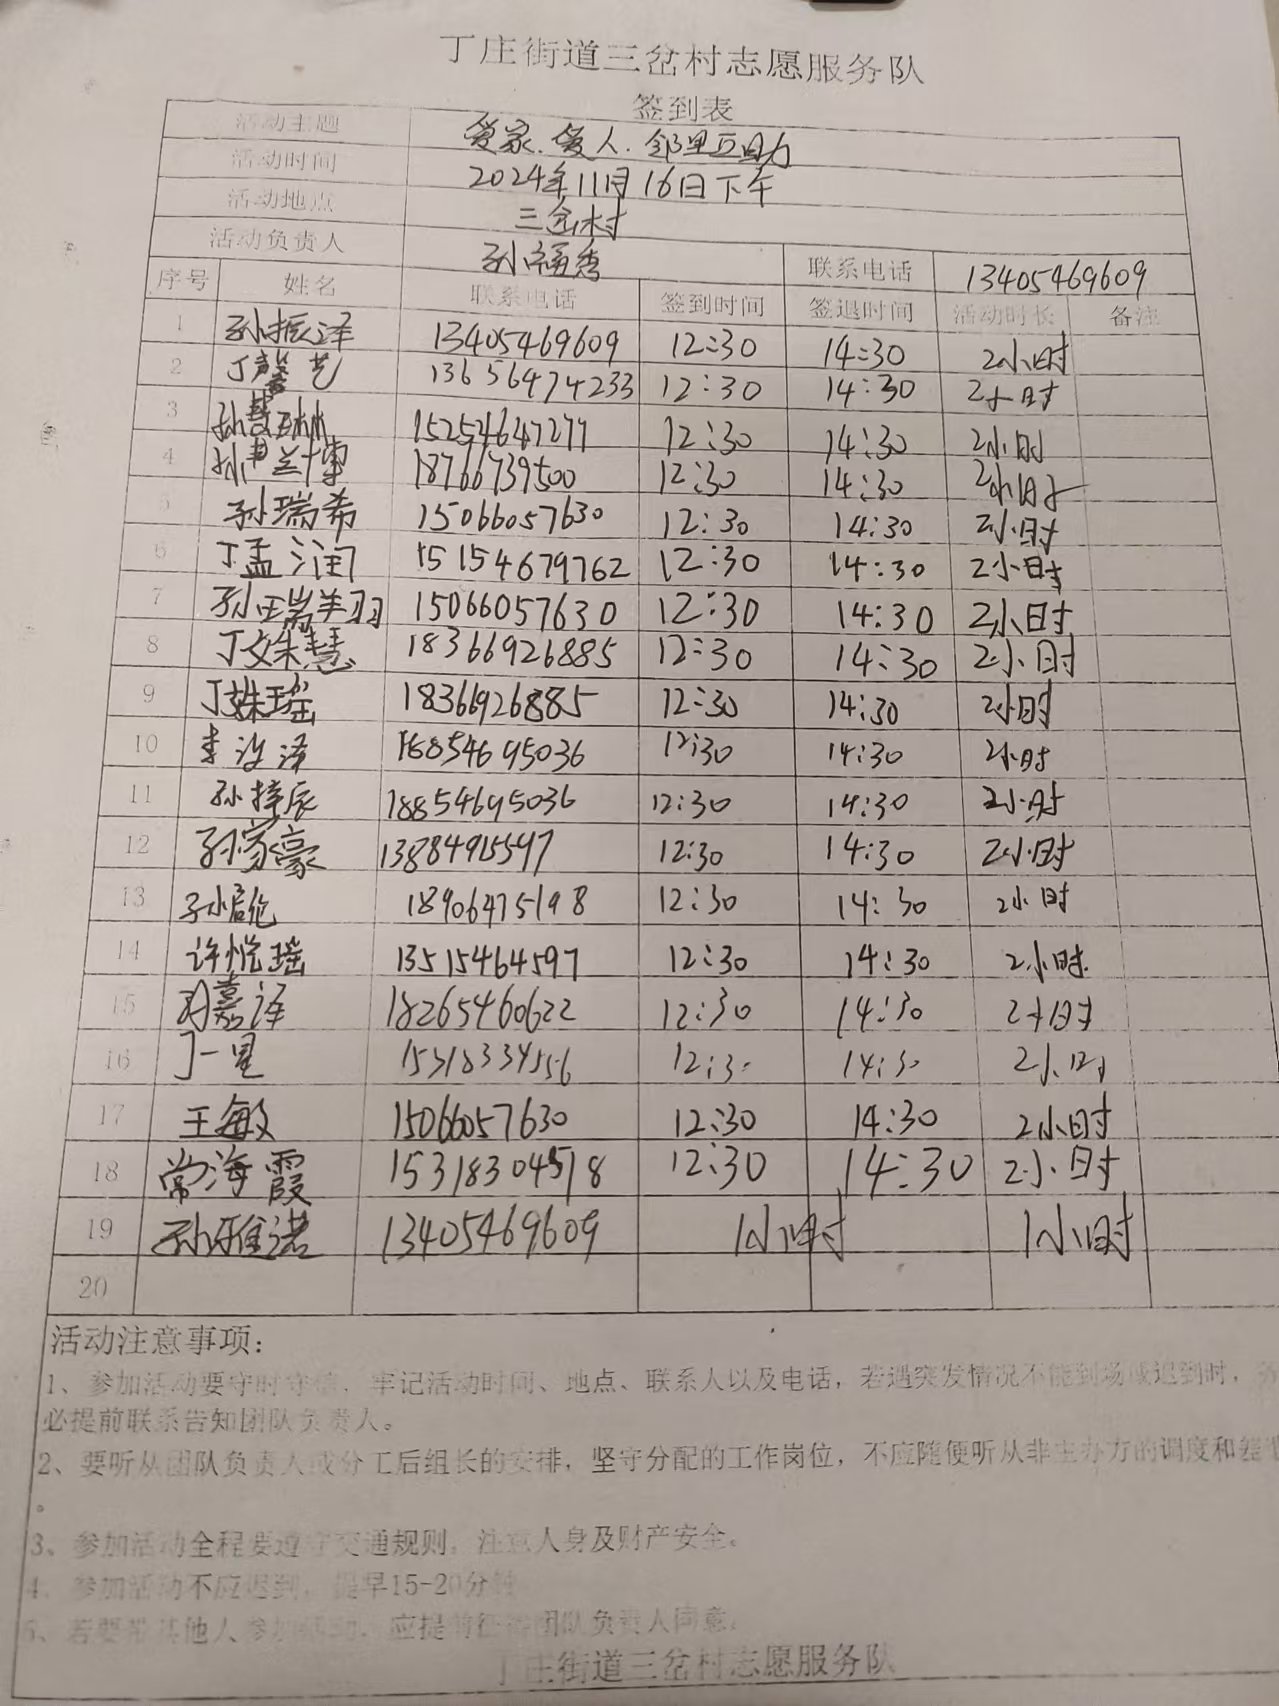 丁庄街道三岔村志愿服务队
签到表
活动主题 爱家.爱人.邻里互助
活动时间 2024年11月16日下午
活动地点 三岔村
活动负责人 孙福秀 联系电话 13405469609
序号 姓名 联系电话 签到时间 签退时间 活动时长 备注
1 孙振泽 13405469609 12:30 14:30 2小时
2 丁馨艺 13656474233 12:30 14:30 2小时
3 15254647277 12:30 14:30 2小时
4 18766739500 12:30 14:30 2小时
5 孙瑞希 15066057630 12:30 14:30 2小时
6 丁孟润 15154679762 12:30 14:30 2小时
7 15066057630 12:30 14:30 2小时
8 丁姝慧 18366926885 12:30 14:30 2小时
9 丁姝瑶 18366926885 12:30 14:30 2小时
10 18854695036 12:30 14:30 2小时
11 孙梓辰 18854695036 12:30 14:30 2小时
12 孙家豪 12:30 14:30 2小时
13 18906475198 12:30 14:30 2小时
14 许悦瑶 13515464597 12:30 14:30 2小时
15 嘉泽 18265460622 12:30 14:30 2小时
16 丁一 12:30 14:30 2小时
17 王敏 15066057630 12:30 14:30 2小时
18 常海霞 15318304518 12:30 14:30 2小时
19 孙雅诺 13405469609 1小时 1小时
20
活动注意事项：
1、参加活动要守时守信，牢记活动时间、地点、联系人以及电话，若遇突发情况不能到场或迟到时，务
必提前联系告知团队负责人。
2、要听从团队负责人或分工后组长的安排，坚守分配的工作岗位，不应随便听从非主办方的调度和差遣
。
3、参加活动全程要遵守交通规则，注意人身及财产安全。
4、参加活动不应迟到，提早15-20分钟
5、若要带其他人参加活动，应提前征得团队负责人同意。
丁庄街道三岔村志愿服务队